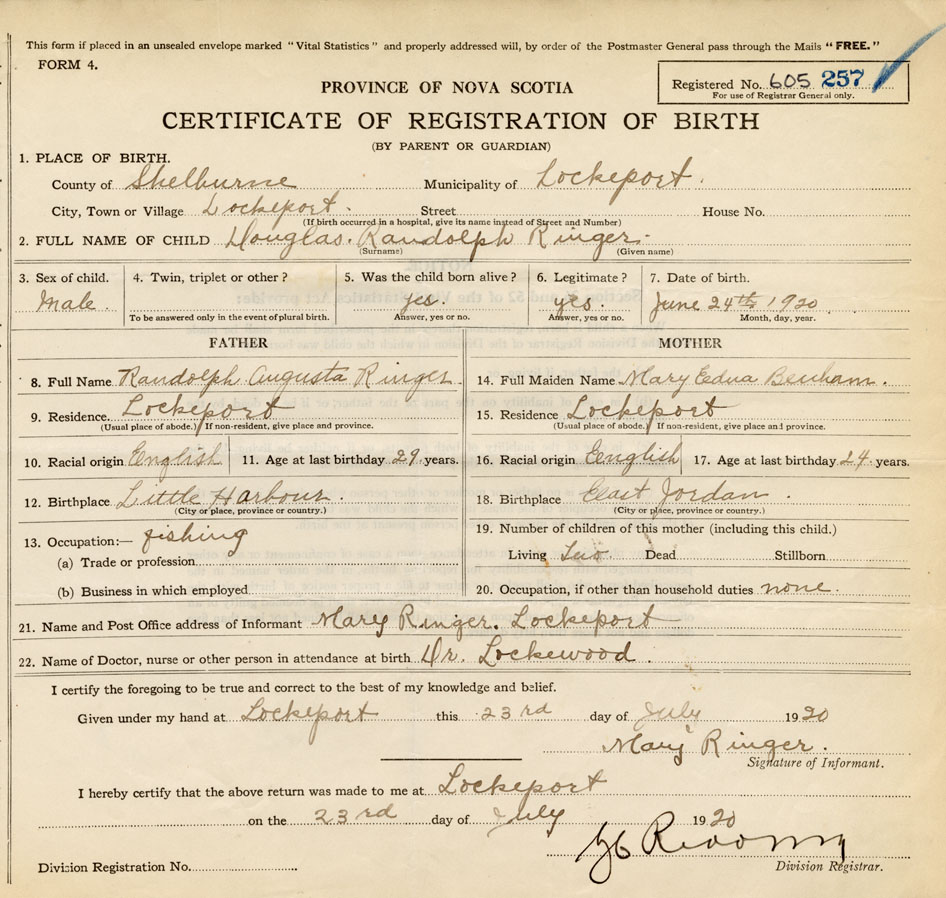 This form if placed in an unsealed envelope marked "Vital Statistics" and properly addressed will, by order of the Postmaster General pass through the Mails "FREE."
FORM 4.
Registered No. 605 257
For use of Registrar General only.
PROVINCE OF NOVA SCOTIA
CERTIFICATE OF REGISTRATION OF BIRTH
(BY PARENT OR GUARDIAN)
1. PLACE OF BIRTH.
County of Shelburne Municipality of Lockeport.
City, Town or Village Lockeport. Street House No.
(If birth occurred in a hospital, give its name instead of Street and Number)
2. FULL NAME OF CHILD Douglas. Randolph Ringer.
(Surname) (Given name)
3. Sex of child. 4. Twin, triplet or other? 5. Was the child born alive? 6. Legitimate? 7. Date of birth.
Male. yes. yes. June 24th 1920
To be answered only in the event of plural birth. Answer, yes or no. Answer, yes or no. Month, day, year.
FATHER MOTHER
8. Full Name Randolph Augusta Ringer 14. Full Maiden Name Mary Edna Benham.
9. Residence. Lockeport 15. Residence Lockeport
(Usual place of abode.) If non-resident, give place and province. (Usual place of abode.) If non-resident, give place and province.
10. Racial origin English 11. Age at last birthday 29 years. 16. Racial origin English 17. Age at last birthday 24 years.
12. Birthplace Little Harbour. 18. Birthplace East Jordan.
(City or place, province or country.) (City or place, province or country.)
13. Occupation:— fishing 19. Number of children of this mother (including this child.)
(a) Trade or profession Living Two Dead Stillborn
(b) Business in which employed 20. Occupation, if other than household duties none.
21. Name and Post Office address of Informant Mary Ringer. Lockeport
22. Name of Doctor, nurse or other person in attendance at birth Dr. Lockewood.
I certify the foregoing to be true and correct to the best of my knowledge and belief.
Given under my hand at Lockeport this 23rd day of July 1920
Mary Ringer.
Signature of Informant.
I hereby certify that the above return was made to me at Lockeport
on the 23rd day of July 1920
Division Registration No. Division Registrar.